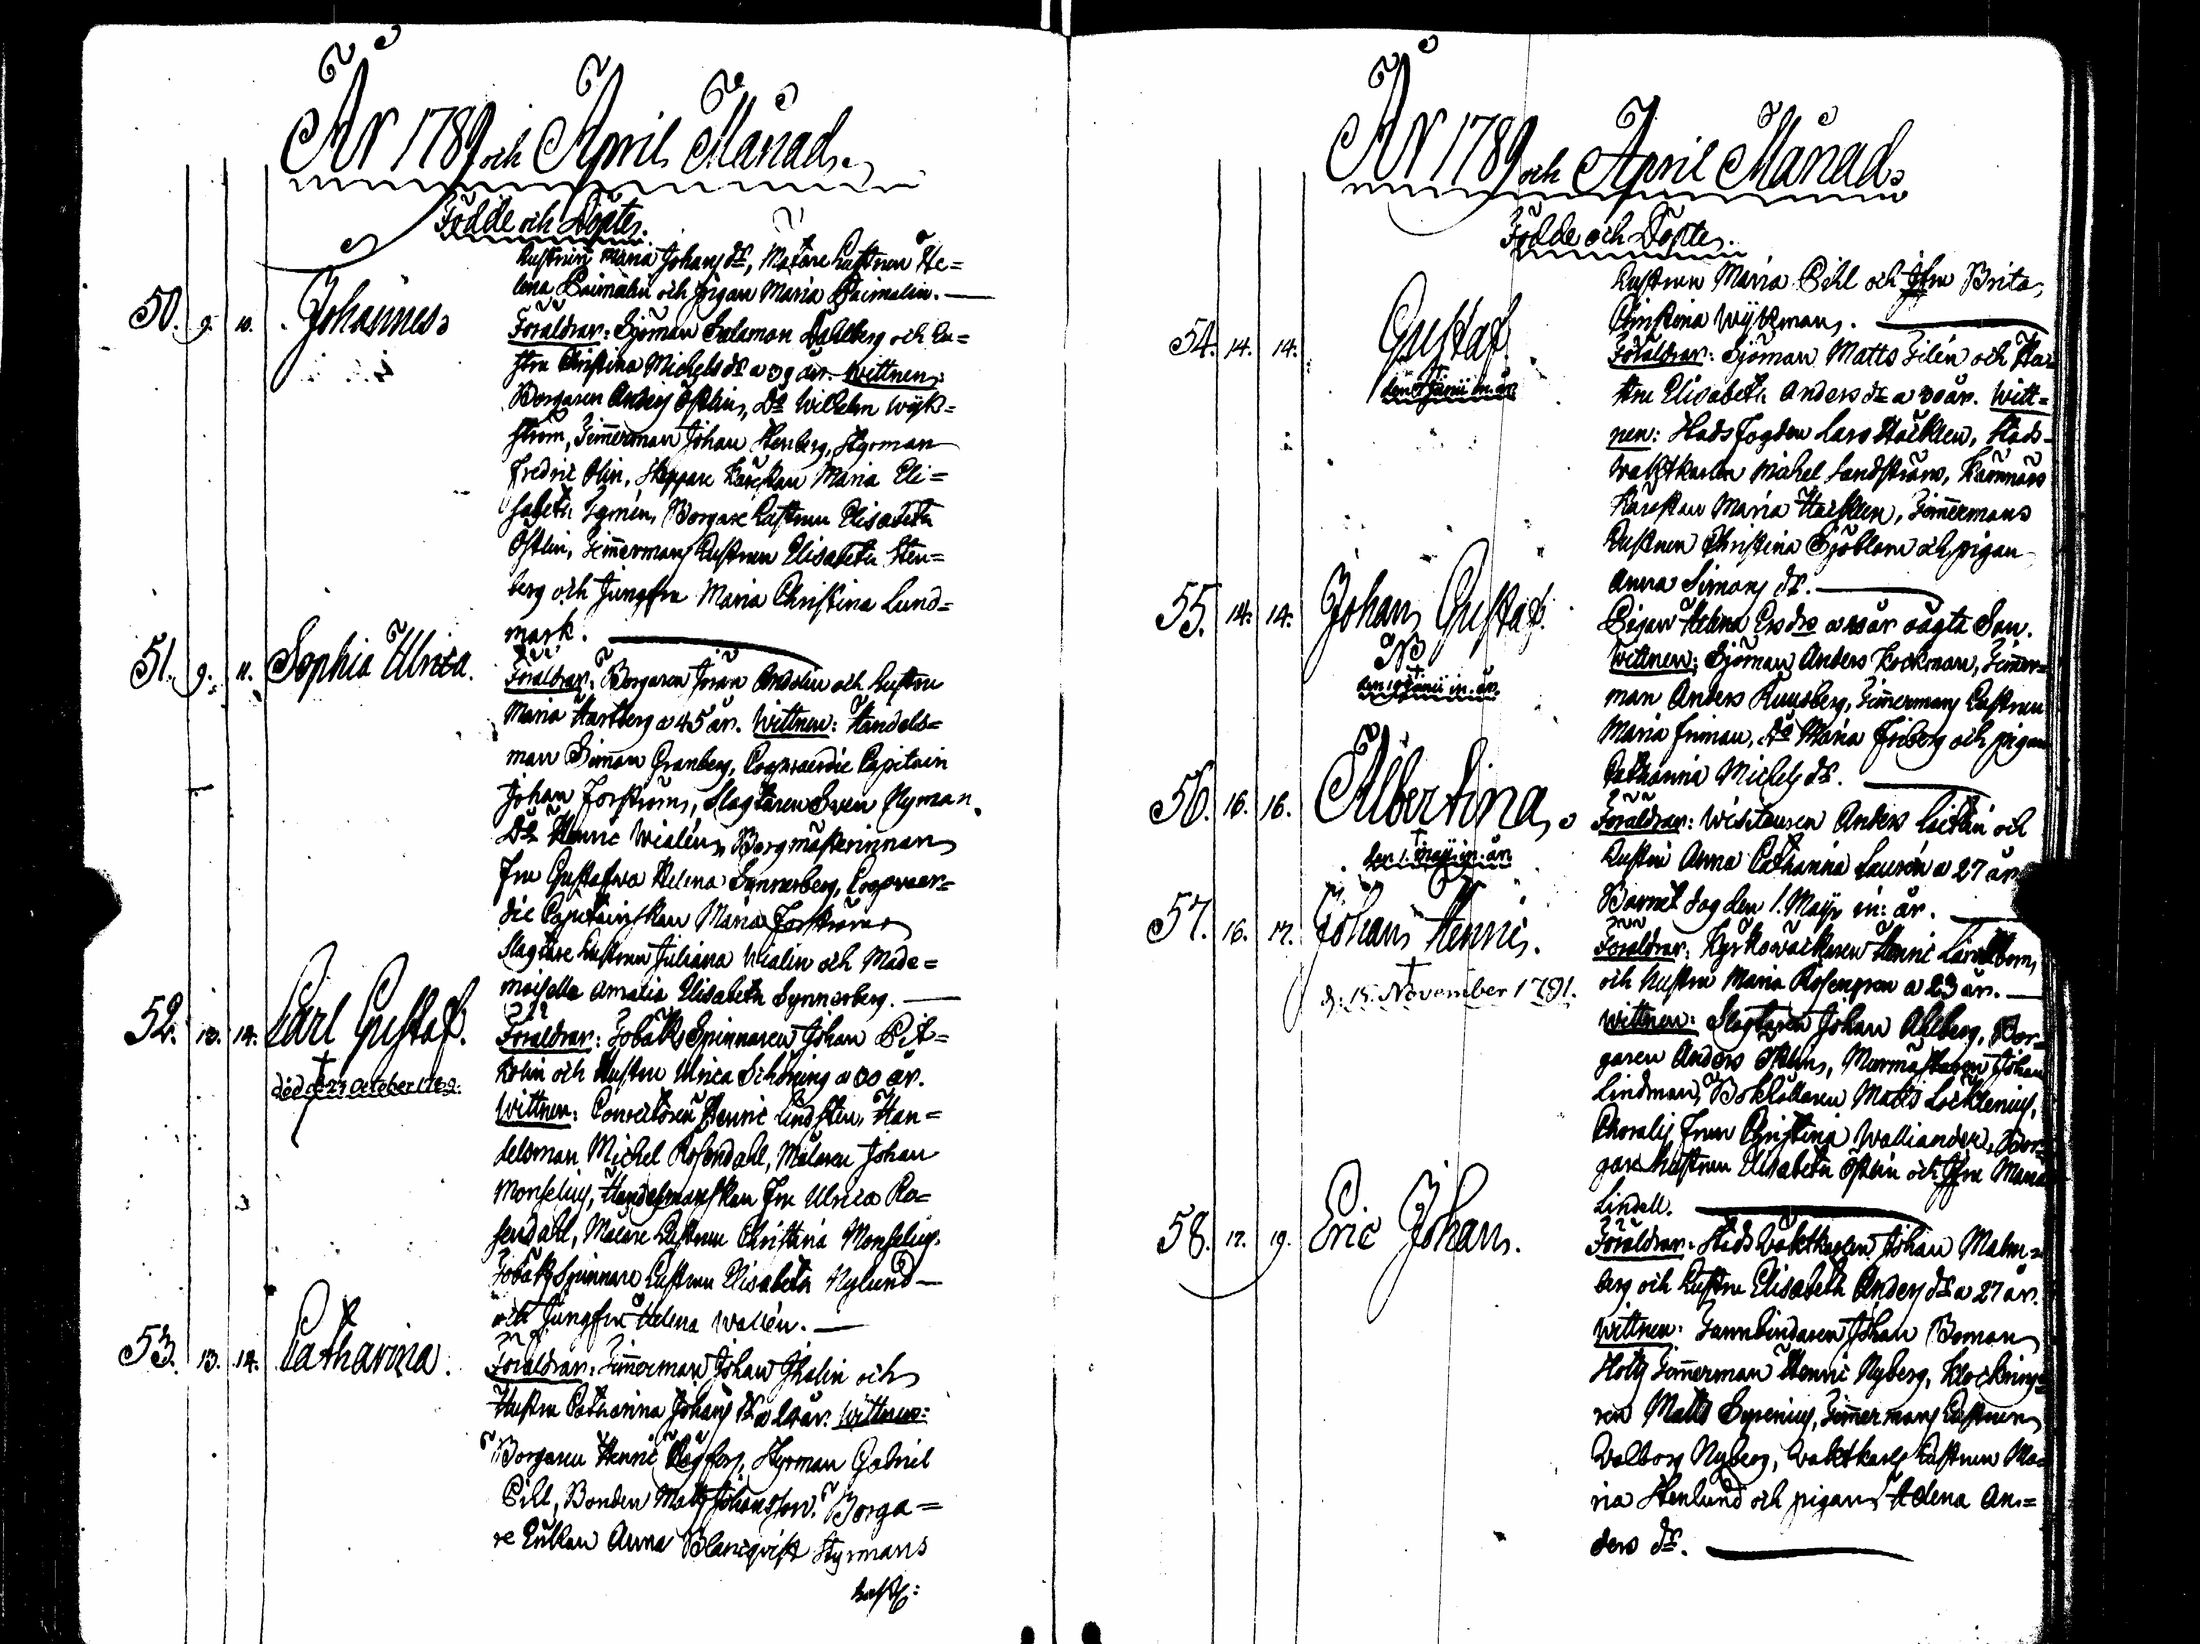 År 1789 och April Månad.
Födde och Döpte.
hustrun Maria Johans dr, Målare hustrun He=
lena Paimalin och pigan Maria Paimalin.
50. 9. 10. Johannes
Föräldrar: Sjöman Salomon Dahlberg och hu=
stru Christina Michels dr a 39 år. Wittnen:
Borgaren Anders Östlin, Do Wilhelm Wijk=
ström, Timmerman Johan Stenberg, Styrman
Fredric Olin, Skeppare Käreskan Maria Eli=
sabeth, Borgare hustrun Elisabeth
Östlin, Timmermans hustrun Elisabeth Sten=
berg och Jungfru Maria Christina Lund=
mark.
51. 9. 11. Sophia Ulrica.
Föräldrar: Borgaren Jöran Ordolin och hustru
Maria Hartberg a 45 år. Wittnen: Handels=
man Simon Granberg, Cogvaerdie Capitain
Johan Forström, Slagtaren Sven Nyman.
Do Henric Wialén, Borgmästerinnan
Fru Gustafva Helena Synnerberg, Cogvaer=
die Capitainskan Maria Forström
Slagtare hustrun Juliana Wialin och Made=
moiselle Amalia Elisabeth Synnerberg.
52. 13. 14. Carl Gustaf.
död d. 23 October 1789.
Föräldrar: Tobaks Spinnaren Johan Pit=
kolin och Hustru Ulrica Schöning a 30 år.
Wittnen: Convectoren Henric Lindsten, Han=
delsman Michel Rosendahl, Målaren Johan
Monselius, Handelsmanskan Fru Ulrica Ro=
sendahl, Målare hustrun Christina Monselius.
Tobaks Spinnare hustrun Elisabeta Nylund
och Jungfru Helena Wallén.
53. 13. 14. Catharina.
Föräldrar: Timmerman Johan Thalin och
Hustru Catharina Johans dr a 28 år. Wittnen:
Borgaren Henric, Styrman Gabriel
Pihl, Bonden Matts Johansson. Borga=
re Enkan Anna Blancqvist Styrmans
hust:
År 1789 och April Månad.
Födde och Döpte.
hustrun Maria Pihl och Jfru Brita
Christina Wijkman.
54. 14. 14. Gustaf.
den Junii in. år
Föräldrar: Sjöman Matts Filén och Hu=
stru Elisabeth Anders dr a 30 år. Witt=
nen: Stads Fogden Lars Hacklin, Stads=
waktkarlen Michel Sandström, Kämnärs
Käreskan Maria Hacklin, Timmermans
hustrun Christina Sjöblom och pigan
Anna Simons dr.
55. 14. 14. Johan Gustaf.
den 19 Junii in. år.
Pigan Helena Ers dr a år oägta Son.
Wittnen: Sjöman Anders Kockman, Timmer=
man Anders Ruusberg, Timmermans hustrun
Maria Friman, Do Maria Friberg och pigan
Catharina Michels dr.
56. 16. 16. Albertina,
den 1. Maji in. år
Föräldrar: Anders och
hustru Anna Catharina Laurén a 27 år
Barnet dog den 1. Maji in: år.
57. 16. 17. Johan Henric.
d: 15. November 1791.
Föräldrar: Kyrkowäcktaren Henric Lindbom,
och hustru Maria Rosengren a 23 år.
Wittnen: Slagtaren Johan Ahlberg, Bor=
garen Anders Östlin, Murmästaren Johan
Lindman, Bokhållaren Matts Locklenius,
Choralis Frun Christina Walliander, Bor=
gare hustrun Elisabeth Östlin och Jfru Maria
Lindell.
58. 17. 19. Eric Johan.
Föräldrar: Stads Waktkarlen Johan Malm=
berg och hustru Elisabeth Anders dr a 27 år.
Wittnen: Tunnbindaren Johan Boman
Holtz Timmerman Henric Nyberg, Klockring=
ren Matts Syrenius, Timmermans hustrun
Walborg Nyberg, Waktkarls hustrun Ma=
ria Stenlund och pigan Helena An=
ders dr.